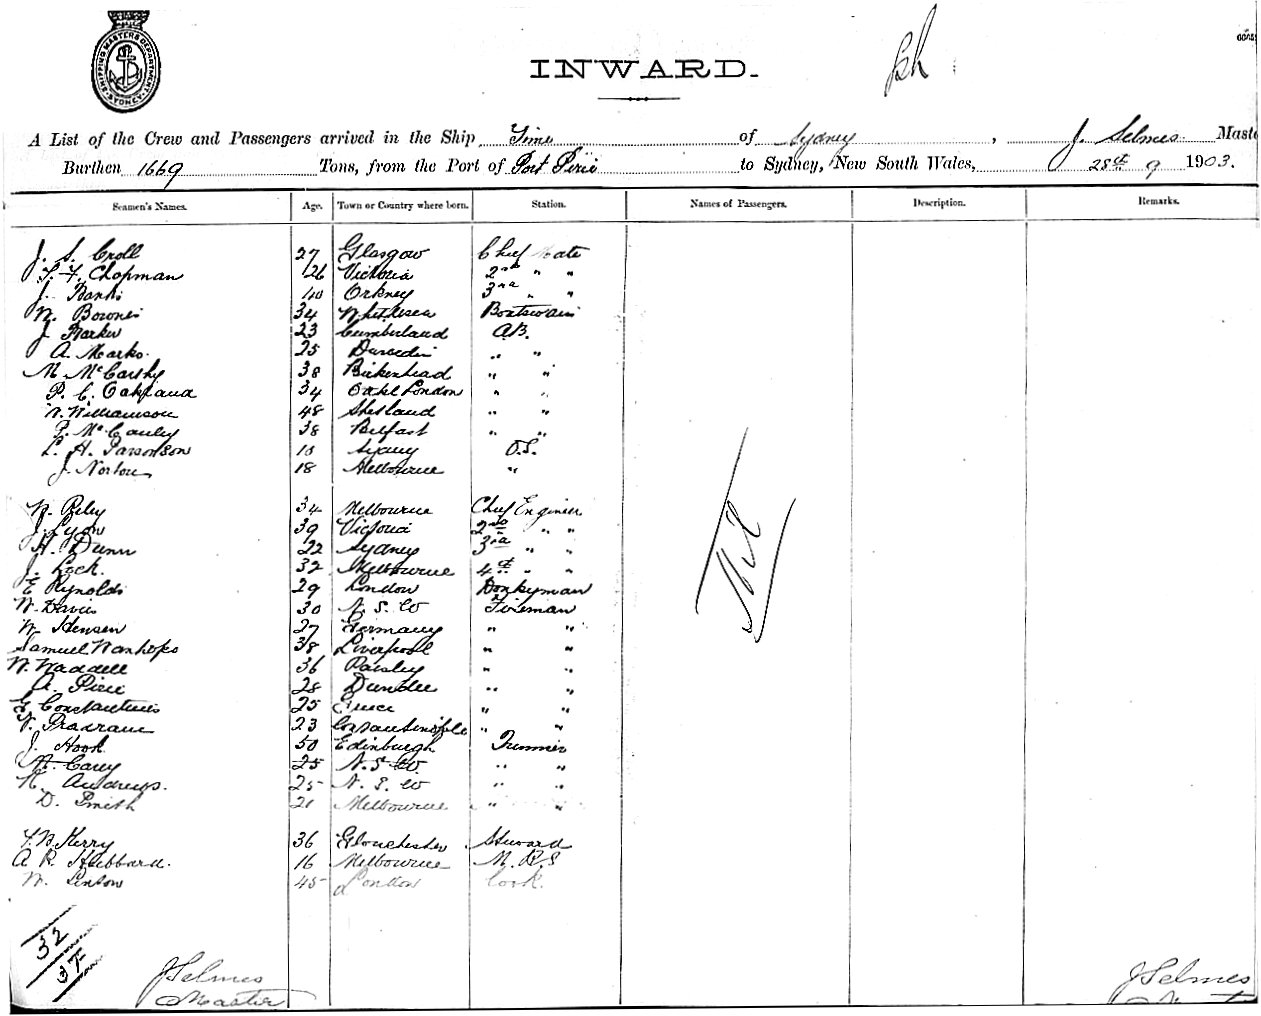 SHIPPING MASTERS DEPARTMENT SYDNEY
INWARD.
A List of the Crew and Passengers arrived in the Ship Time of Sydney, J. Selmes Maste
Burthen 1669 Tons, from the Port of Port Pirie to Sydney, New South Wales, 28th 9 1903.
Seamen's Names. Age. Town or Country where born. Station. Names of Passengers. Description. Remarks.
J. S. Croll 27 Glasgow Chief Mate
Chapman 26 Victoria 2nd " "
J. Banks 40 Orkney 3rd " "
W. 34 Boatswain
J. Parker 23 Cumberland A.B.
A. Marks. 25 Dunedin " "
M. McCarthy 38 Birkenhead " "
P. C. Oakland 34 London " "
W. Williamson 48 Shetland " "
McCauley 38 Belfast " "
L. H. Parsonson Sydney O.S.
J. Norton 18 Melbourne "
Nil
W. Riley 34 Melbourne Chief Engineer
J. Lyon 39 Victoria 2nd " "
H. Dunn 22 Sydney 3rd " "
J. Lock. 32 Melbourne 4th " "
E Reynolds 29 London Donkyman
W. Davis 30 N. S. W Fireman
W Hensen 27 Germany " "
Samuel Wanhops 38 Liverpool " "
W. Waddell 36 Paisley " "
A. 28 Dundee " "
G Constantinis 25 Greece " "
23 Constantinople " "
J. Hook 50 Edinburgh Trimmer
Carey 25 N. S W " "
Andrews. 25 N. S. W " "
D. Smith 21 Melbourne " "
Kerry 36 Glouchester Steward
A R. Hubbard. 16 Melbourne M. R. S
W. Linton 45 London Cook.
32
J Selmes J Selmes
Master